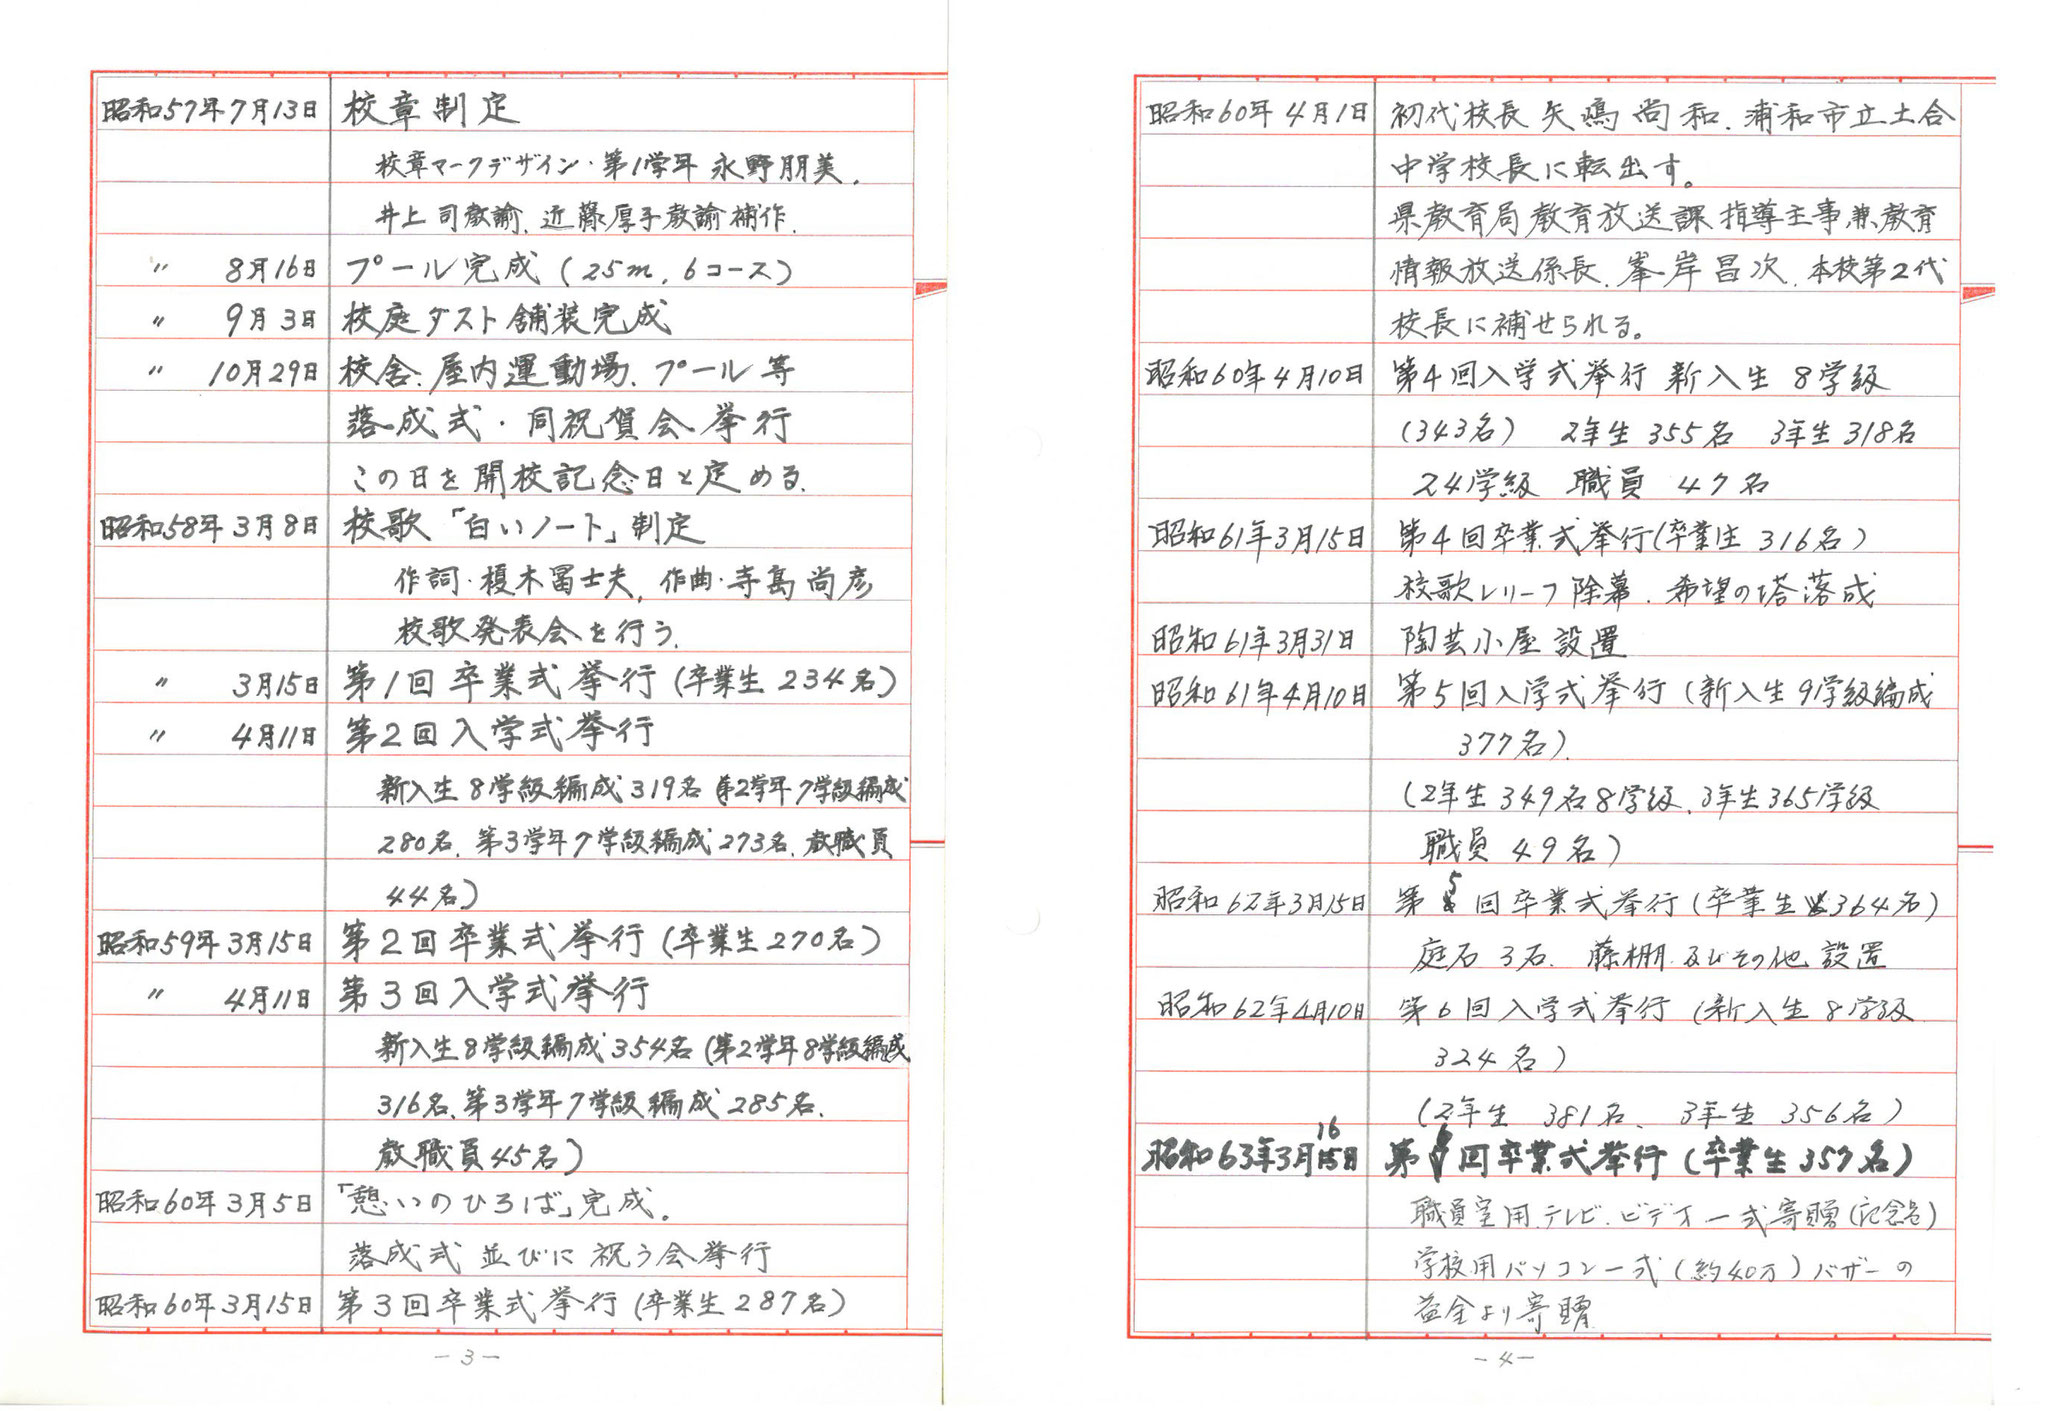 昭和57年7月13日 校章制定
校章マークデザイン・第1学年 永野朋美.
井上 司教諭、近藤厚子教諭補作.
〃 8月16日 プール完成(25m, 6コース)
〃 9月3日 校庭ダスト舗装完成
〃 10月29日 校舎、屋内運動場、プール等
落成式・同祝賀会挙行
この日を開校記念日と定める.
昭和58年3月8日 校歌「白いノート」制定
作詞・榎木冨士夫, 作曲・寺島尚彦
校歌発表会を行う.
〃 3月15日 第1回卒業式挙行(卒業生234名)
〃 4月11日 第2回入学式挙行
新入生8学級編成319名(第2学年7学級編成
280名、第3学年7学級編成273名、教職員
44名)
昭和59年3月15日 第2回卒業式挙行(卒業生270名)
〃 4月11日 第3回入学式挙行
新入生8学級編成354名(第2学年8学級編成
316名、第3学年7学級編成285名.
教職員45名)
昭和60年3月5日 「憩いのひろば」完成.
落成式並びに祝う会挙行
昭和60年3月15日 第3回卒業式挙行(卒業生287名)
-3-
昭和60年4月1日 初代校長 矢嶋尚和、浦和市立土合
中学校長に転出す。
県教育局教育放送課指導主事兼教育
情報放送係長、峯岸昌次、本校第2代
校長に補せられる。
昭和60年4月10日 第4回入学式挙行 新入生 8学級
(343名) 2年生355名 3年生318名
24学級 職員 47名
昭和61年3月15日 第4回卒業式挙行(卒業生316名)
校歌レリーフ除幕、希望の塔落成
昭和61年3月31日 陶芸小屋設置
昭和61年4月10日 第5回入学式挙行(新入生9学級編成
377名)
(2年生349名8学級、3年生365学級
職員49名)
昭和62年3月15日 第5回卒業式挙行(卒業生364名)
庭石3石、藤棚及びその他設置
昭和62年4月10日 第6回入学式挙行(新入生8学級
324名)
(2年生 381名、3年生 356名)
昭和63年3月16日 第6回卒業式挙行(卒業生357名)
職員室用テレビ、ビデオ一式寄贈(記念品)
学校用パソコン一式(約40万)バザーの
益金より寄贈
-4-